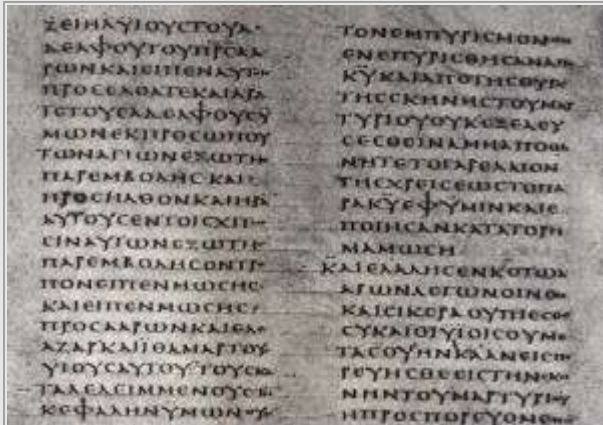 ΖΕΙΗΛΥΙΟΥCΤΟΥΑ
ΔΕΛΦΟΥΤΟΥΠΡCΑΑ
ΡΩΝΚΑΙΕΙΠΕΝΑΥΤΟΙ
ΠΡΟCΕΛΘΑΤΕΚΑΙΑΡΑ
ΤΕΤΟΥCΑΔΕΛΦΟΥCΥ
ΜΩΝΕΚΠΡΟCΩΠΟΥ
ΤΩΝΑΓΙΩΝΕΞΩΤΗ
ΠΑΡΕΜΒΟΛΗCΚΑΙ
ΠΡΟCΗΛΘΟΝΚΑΙΗΡΑ
ΑΥΤΟΥCΕΝΤΟΙCΧΙΤΩ
CΙΝΑΥΤΩΝΕΞΩΤΗC
ΠΑΡΕΜΒΟΛΗCΟΝΤΡΟ
ΠΟΝΕΙΠΕΝΜΩCΗC
ΚΑΙΕΙΠΕΝΜΩCΗC
ΠΡΟCΑΑΡΩΝΚΑΙΕΛΕ
ΑΖΑΡΚΑΙΙΘΑΜΑΡΤΟΥC
ΥΙΟΥCΑΥΤΟΥΤΟΥCΚΑ
ΤΑΛΕΛΕΙΜΜΕΝΟΥC
ΚΕΦΑΛΗΝΥΜΩΝΟΥΚ
ΤΟΝΕΜΠΥΡΙCΜΟΝ
ΕΝΕΠΥΡΙCΘΗCΑΝ
ΚΥΚΑΙΑΠΟΤΗCΘΥΡΑ
ΤΗCCΚΗΝΗCΤΟΥΜΑΡ
ΤΥΡΙΟΥΟΥΚΕΞΕΛΕΥ
CΕCΘΕΙΝΑΜΗΑΠΟΘΑ
ΝΗΤΕΤΟΓΑΡΕΛΑΙΟΝ
ΤΗCΧΡΕΙCΕΩCΤΟΠΑ
ΡΑΚΥΕΦΥΜΙΝΚΑΙΕ
ΠΟΙΗCΑΝΚΑΤΑΤΟΡΗ
ΜΑΜΩCΗ
ΚΑΙΕΛΑΛΗCΕΝΚCΤΩΑ
ΑΡΩΝΛΕΓΩΝΟΙΝΟΝ
ΚΑΙCΙΚΕΡΑΟΥΠΙΕCΘΕ
CΥΚΑΙΟΙΥΙΟΙCΟΥΜΕ
ΤΑCΟΥΗΝΚΑΑΝΕΙC
ΡΕΥΗCΘΕΕΙCΤΗΝCΚΗ
ΝΗΝΤΟΥΜΑΡΤΥΡΙΟΥ
ΗΠΡΟCΠΟΡΕΥΟΜΕΝΩ